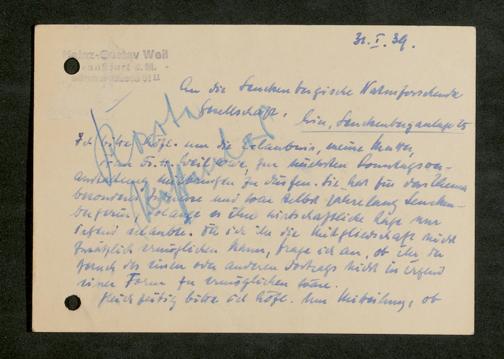 Heinz-Gustav Weil
Frankfurt a. M.
31. I. 39.
An die Senckenbergische Naturforschende
Gesellschaft,
hier, Senckenberganlage 25
Ich bitte höfl. um die Erlaubnis, meine Mutter,
zur nächsten
zu dürfen. Sie hat für das Thema
besonderes und war selbst jahrelang Sencken-
bergerin, solange es ihre wirtschaftliche Lage nur
erlaubte. Da ich ihr die Mitgliedschaft nicht
ermöglichen kann, frage ich an, ob ihr der
Besuch des einen oder anderen Vortrags nicht in irgend
einer Form zu ermöglichen wäre.
Gleichzeitig bitte ich höfl. um Mitteilung, ob